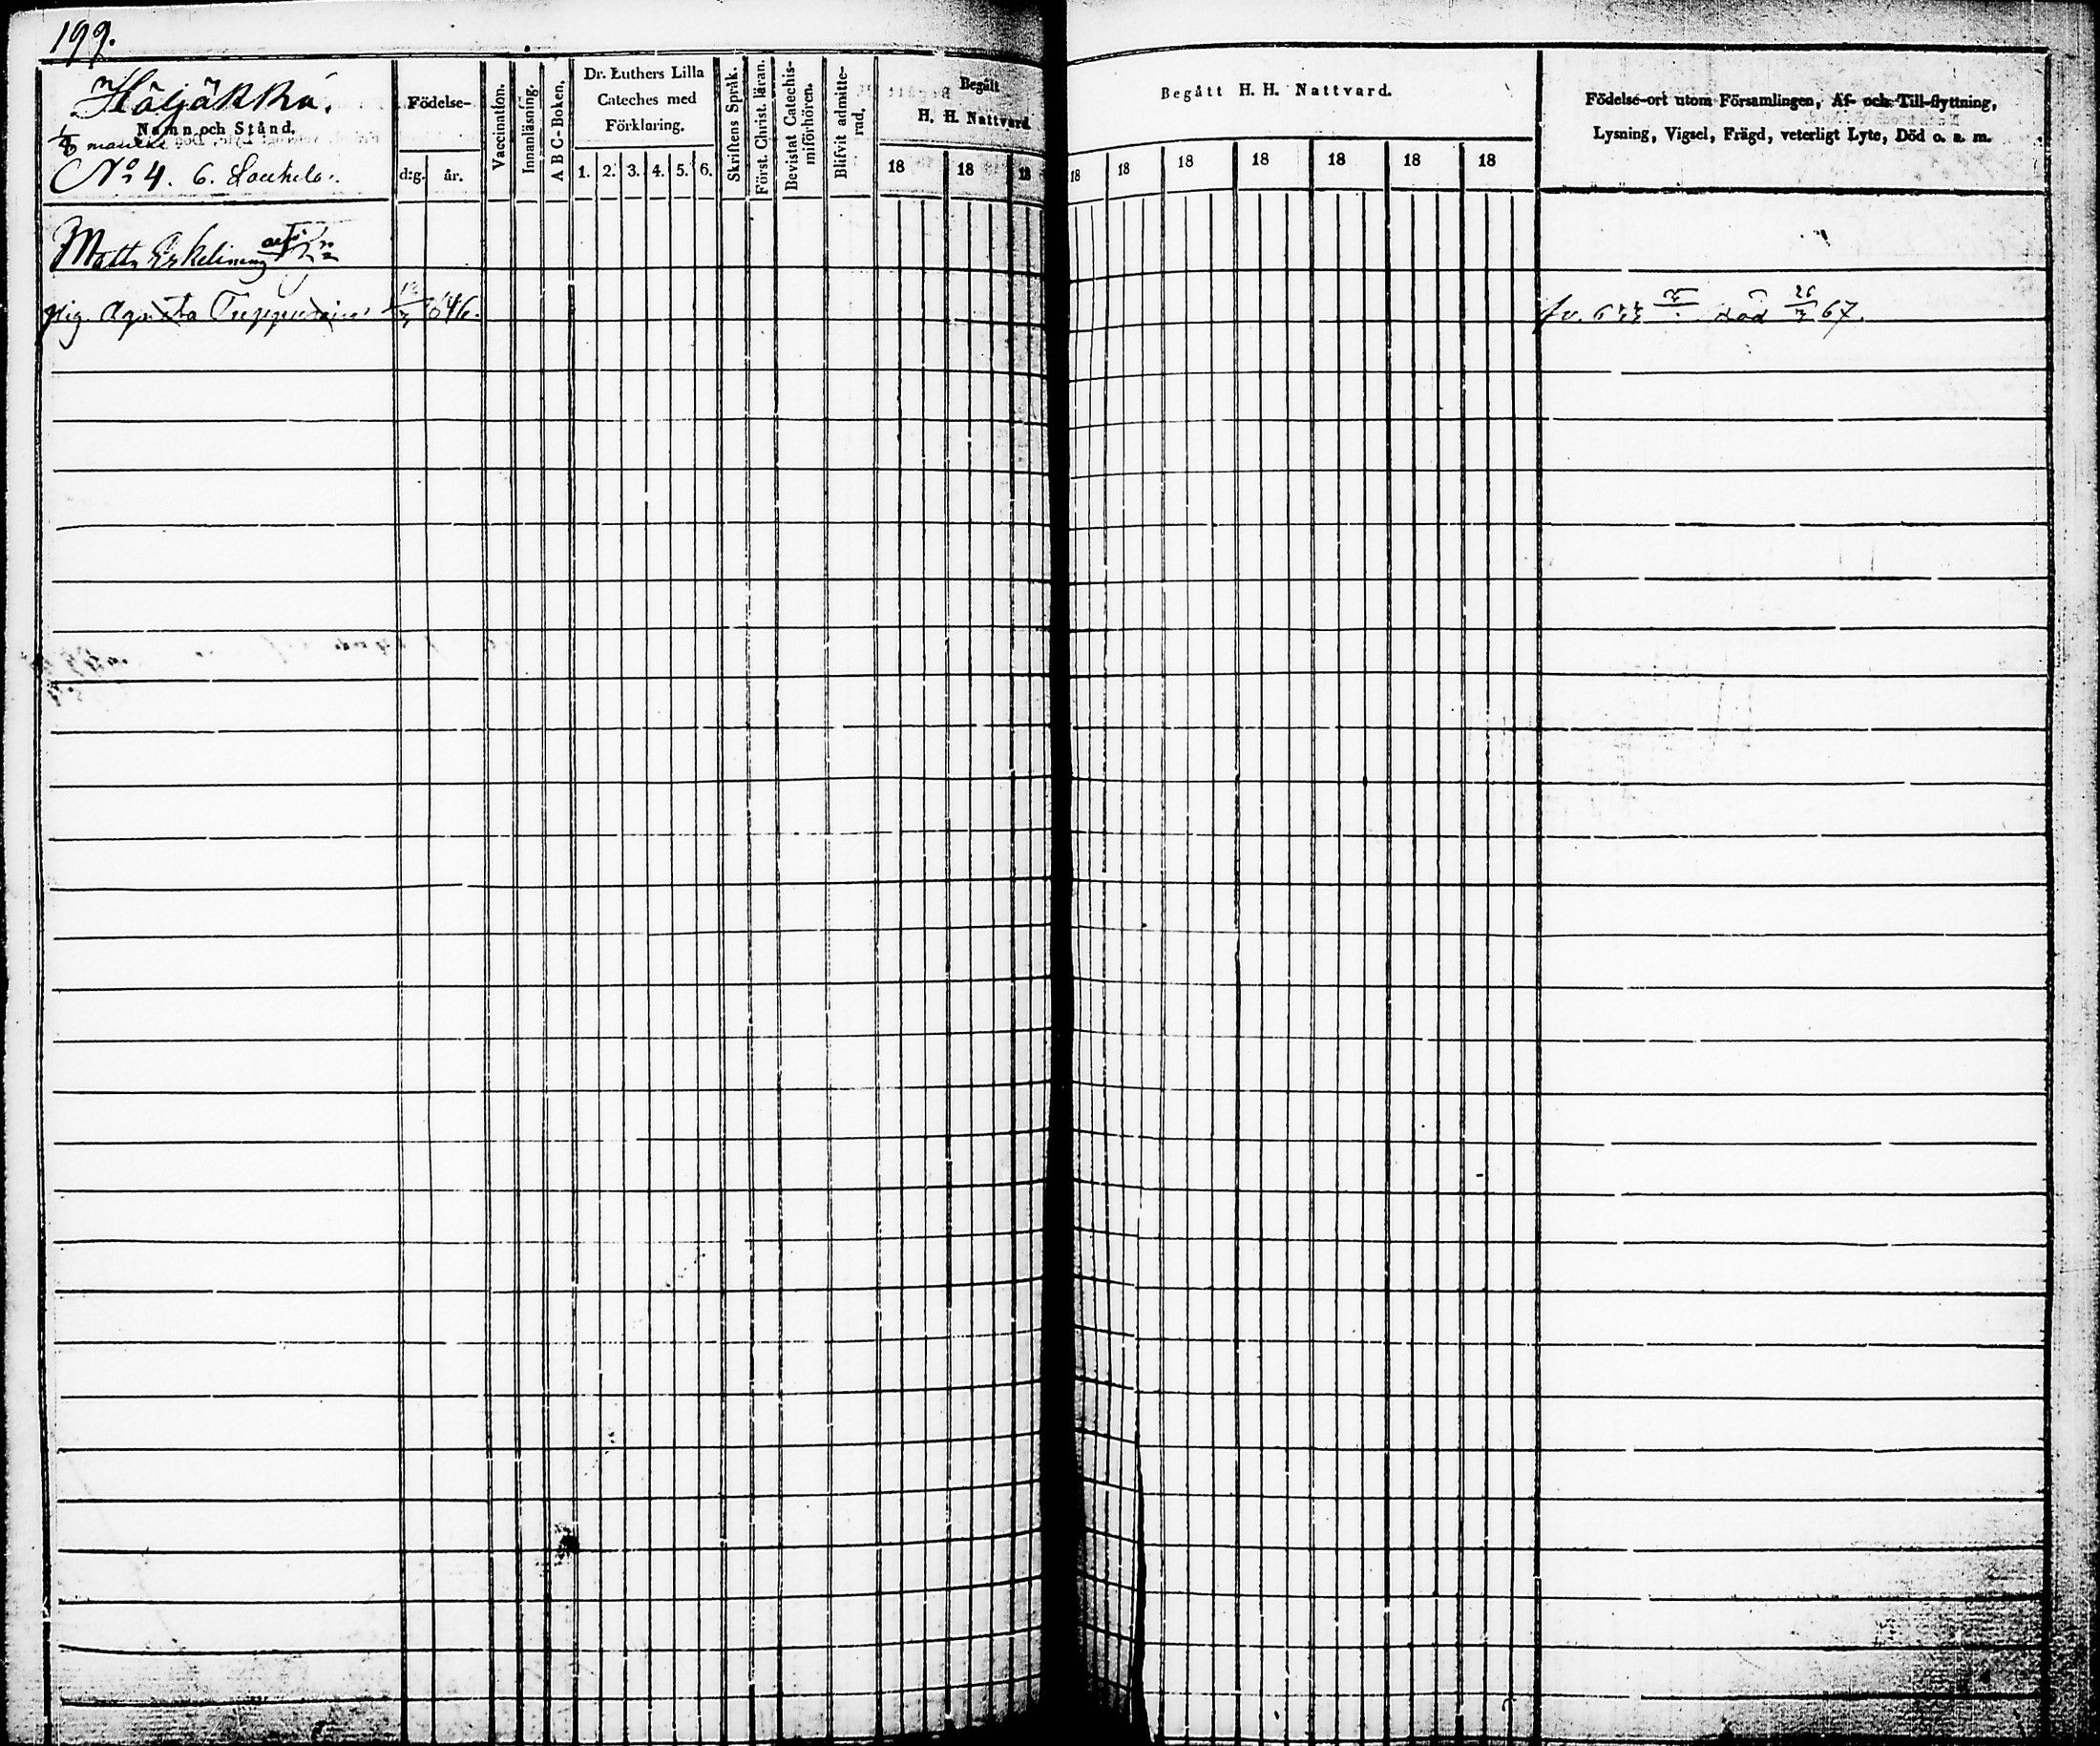 199.
Häljäkkä.
Namn och Stånd.
No 4. 6.
Födelse-
d:g. år.
Vaccination.
Innanläsning.
A B C-Boken.
Dr. Luthers Lilla
Cateches med
Förklaring.
1. 2. 3. 4. 5. 6.
Skriftens Språk.
Först. Christ. läran.
Bevistat Catechis-
miförhören.
Blifvit admitte-
rad,
Begått
H. H. Nattvard
18 18 18
Begått H. H. Nattvard.
18 18 18 18 18 18 18
Födelse-ort utom Församlingen, Af- och Till-flyttning,
Lysning, Vigsel, Frägd, veterligt Lyte, Död o. s. m.
Matts
pig. Agneta 846.
död 26 67.